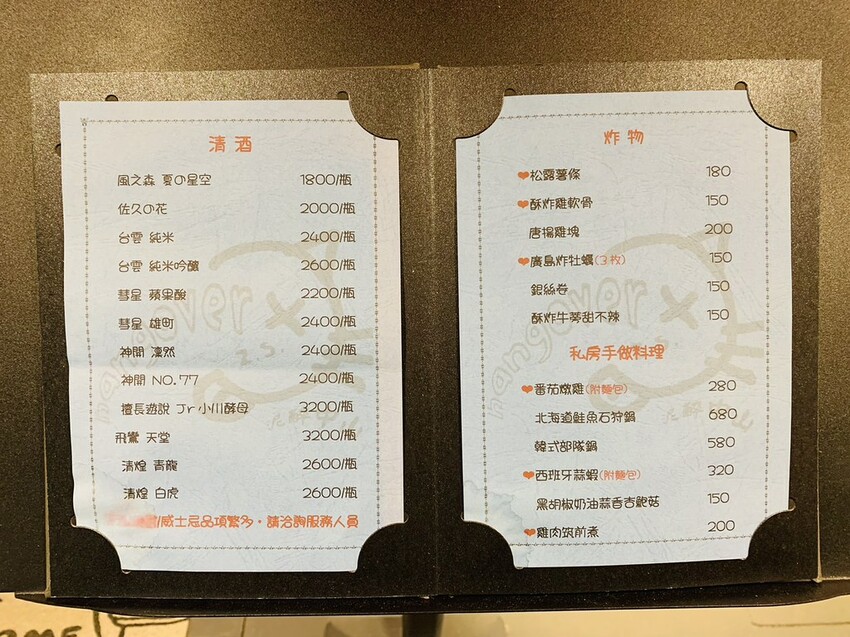 清酒
風之森 夏の星空 1800/瓶
佐久の花 2000/瓶
台雲 純米 2400/瓶
台雲 純米吟釀 2600/瓶
彗星 蘋果酸 2200/瓶
彗星 雄町 2400/瓶
神開 凜然 2400/瓶
神開 NO.77 2400/瓶
擅長遊說 Jr 小川酵母 3200/瓶
飛鸞 天堂 3200/瓶
清煌 青龍 2600/瓶
清煌 白虎 2600/瓶
/威士忌品項繁多・請洽詢服務人員
炸物
❤松露薯條 180
❤酥炸雞軟骨 150
唐揚雞塊 200
❤廣島炸牡蠣(3枚) 150
銀絲卷 150
酥炸牛蒡甜不辣 150
私房手做料理
❤番茄燉雞(附麵包) 280
北海道鮭魚石狩鍋 680
韓式部隊鍋 580
❤西班牙蒜蝦(附麵包) 320
黑胡椒奶油蒜香杏鮑菇 150
❤雞肉筑前煮 200
hangover x